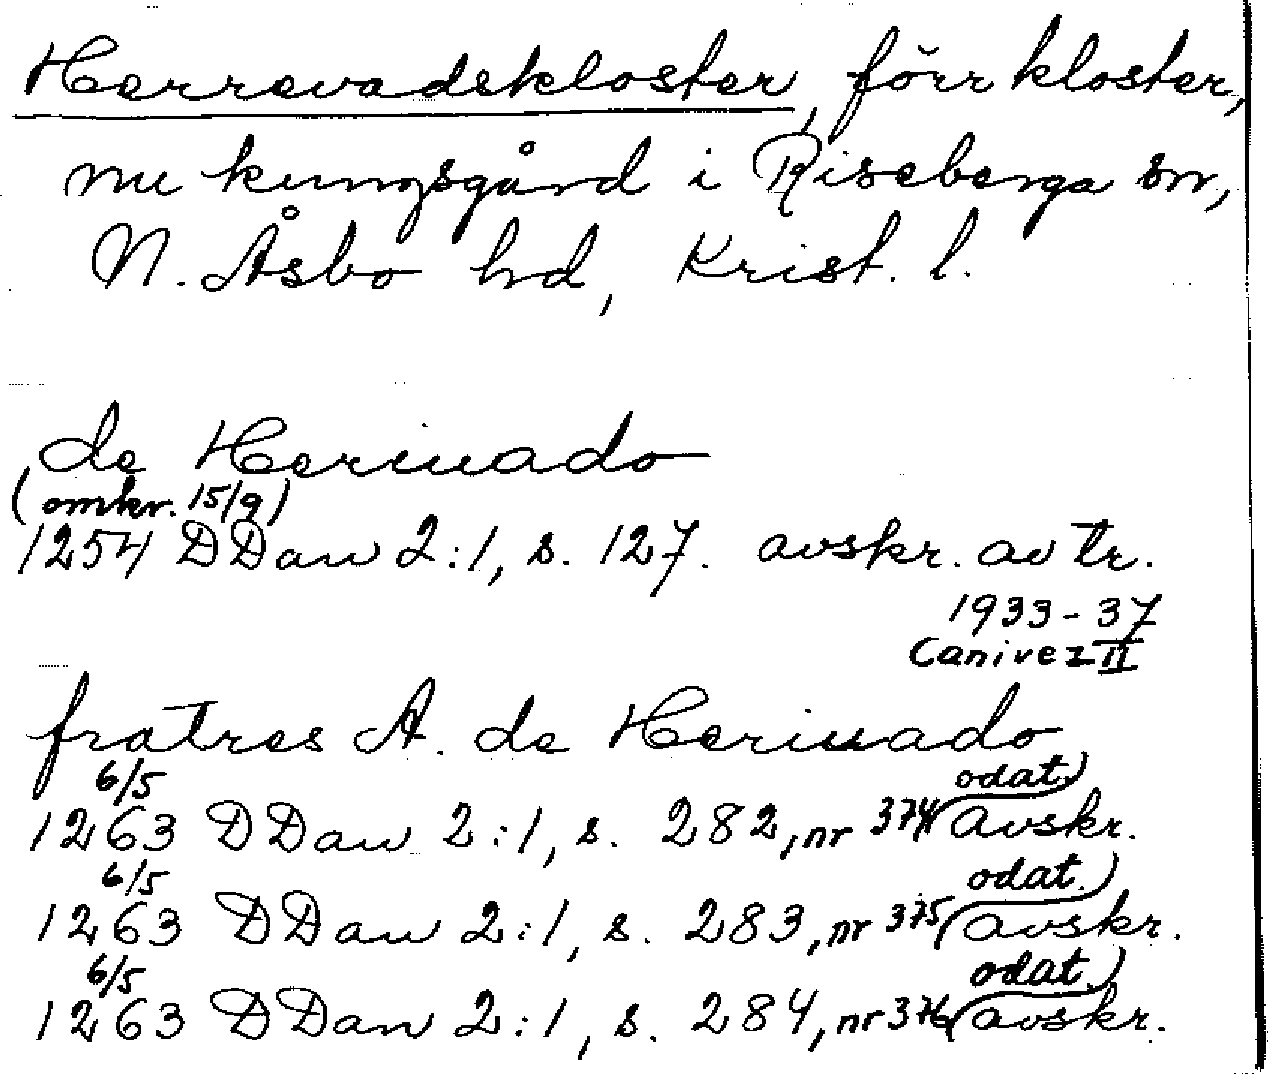 Herrevadskloster, förr kloster,
nu kungsgård i Riseberga sn,
N. Åsbo hd, Krist. l.
de Heriuado
(omkr. 15/9)
1254 DDan 2:1, s. 127. avskr. av tr.
1933-37
Canivez II
fratres A. de Heriuado
6/5 odat.)
1263 DDan 2:1, s. 282, nr 374 (avskr.
6/5 odat.)
1263 DDan 2:1, s. 283, nr 375 (avskr.
6/5 odat.)
1263 DDan 2:1, s. 284, nr 376 (avskr.